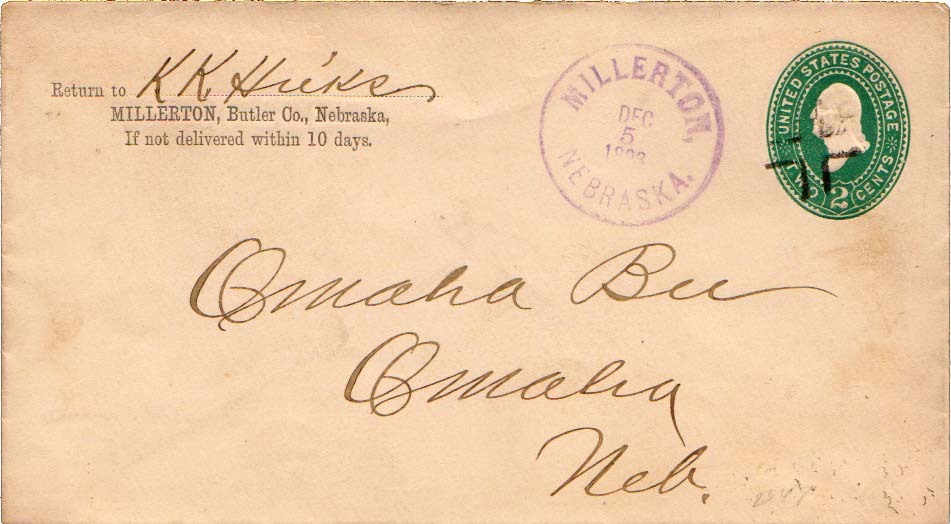 Return to K K Hicks
MILLERTON, Butler Co., Nebraska,
If not delivered within 10 days.
MILLERTON,
DEC
5
1893
NEBRASKA.
UNITED STATES POSTAGE
TWO 2 CENTS
Omaha Bee
Omaha
Neb.